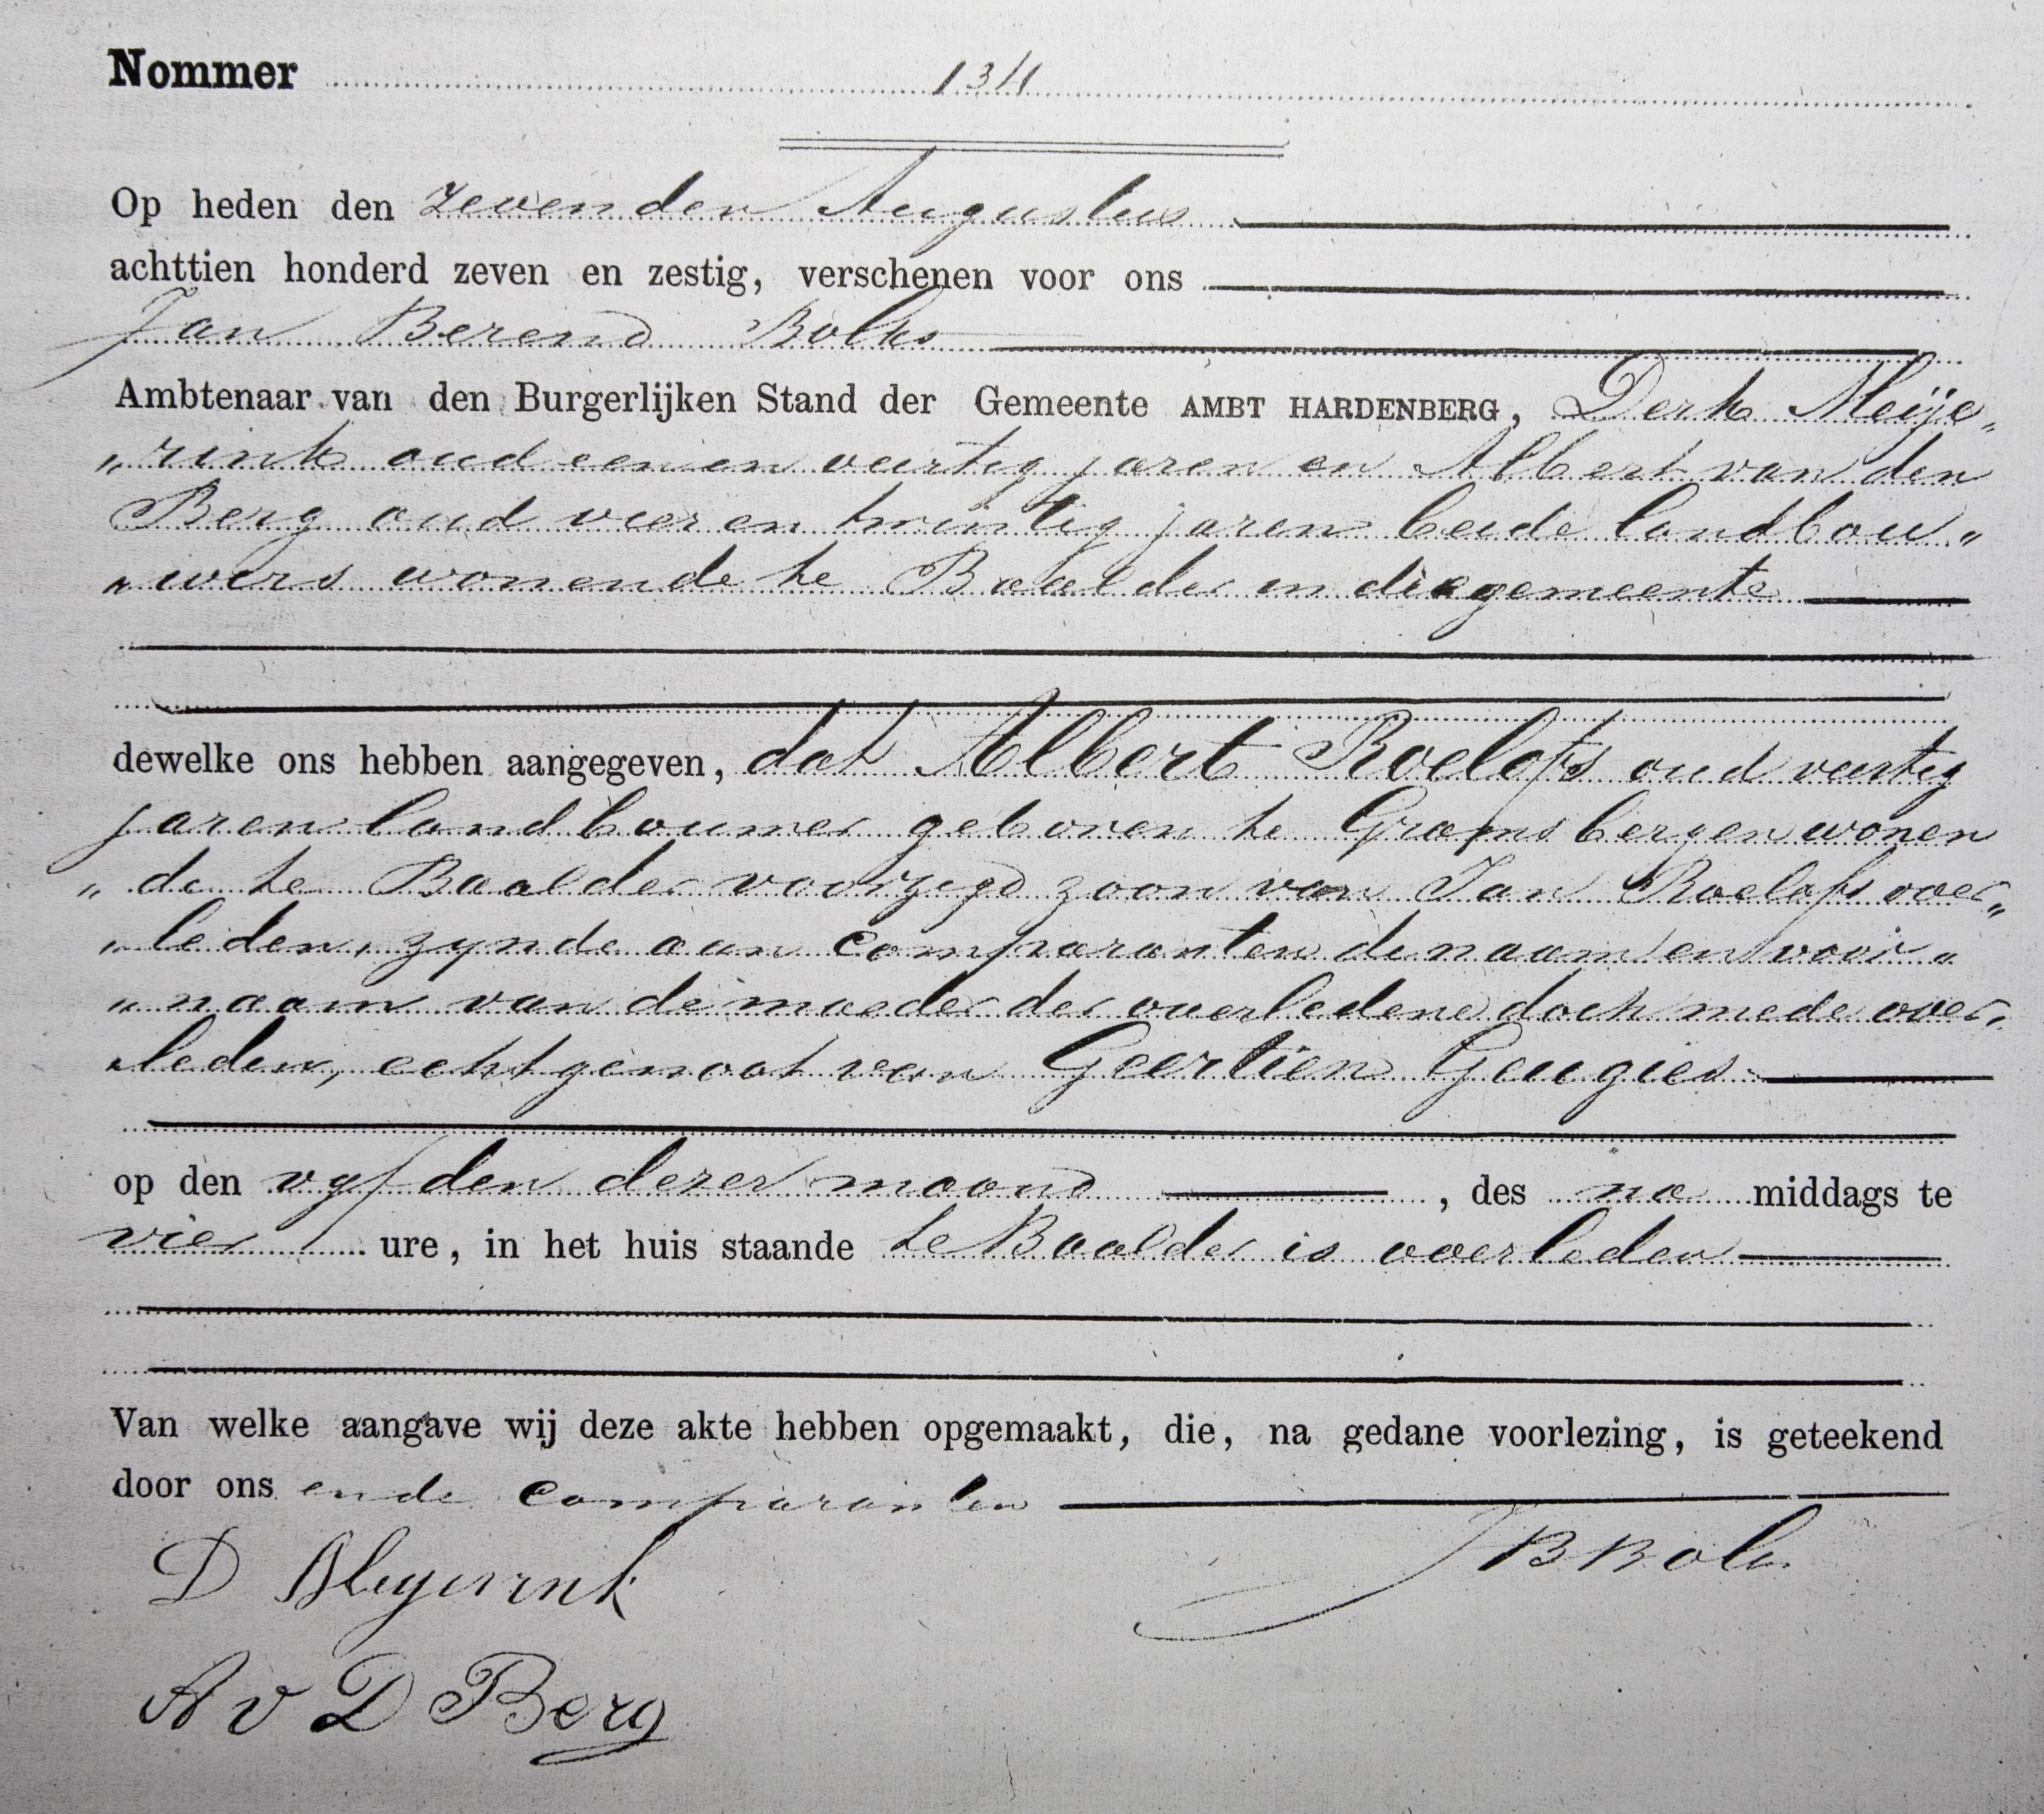 Nommer 134
Op heden den zevenden Augustus
achttien honderd zeven en zestig, verschenen voor ons
Jan Berend Bolks
Ambtenaar van den Burgerlijken Stand der Gemeente AMBT HARDENBERG, Derk Meije„
„rink oud een en veertig jaren en Albert van den
Berg oud vier en twintig jaren beide landbou„
„wers wonende te Baalder in diegemeente
dewelke ons hebben aangegeven, dat Albert Roelofs oud veertig
jaren landbouwer geboren te Gramsbergen wonen
„de te Baalder voorzegd zoon van Jan Roelofs over„
„leden, zynde aan comparanten de naam en voor„
„naam van de moeder der overledene doch mede over„
„leden, echtgenoot van Geertien Geugies
op den vyfden dezer maand , des na middags te
vier ure, in het huis staande te Baalder is overleden
Van welke aangave wij deze akte hebben opgemaakt, die, na gedane voorlezing, is geteekend
door ons en de comparanten
D Meyerink JBBolks
A v D Berg